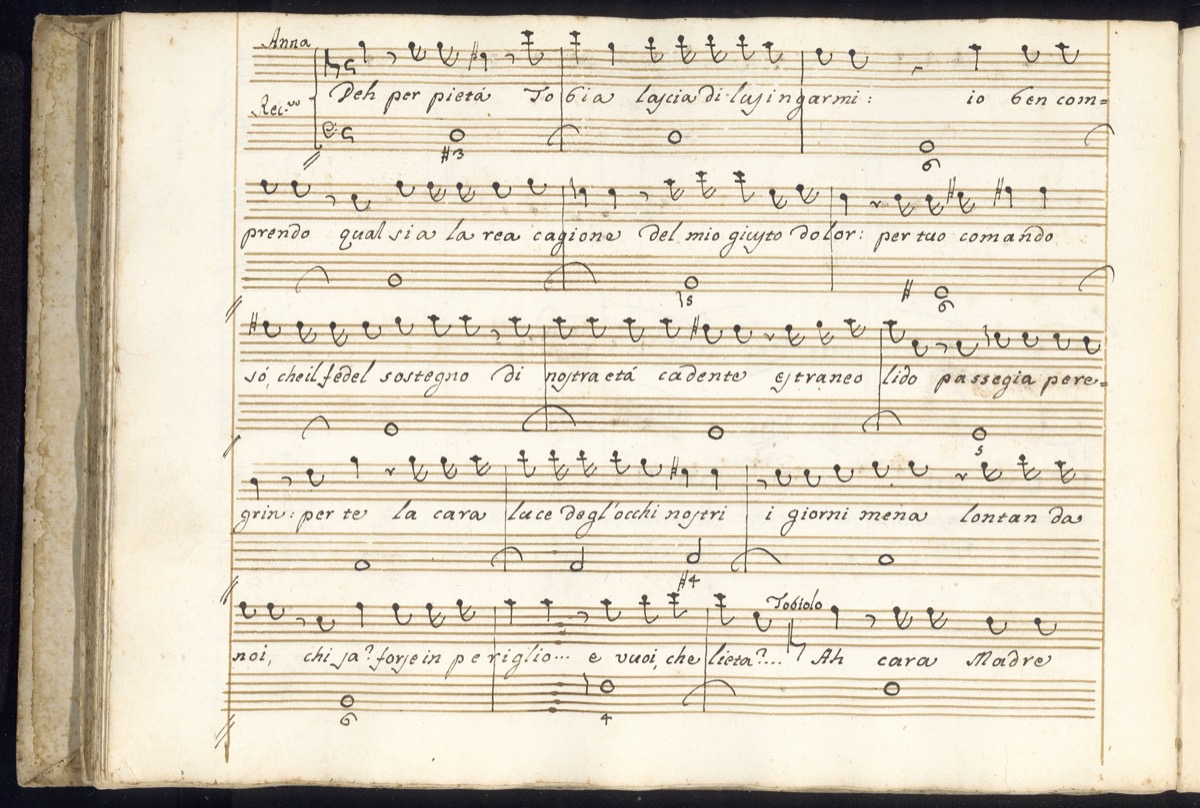 Anna
Deh per pietá Tobia lascia di lusingarmi: io ben com=
Rec.vo
#3 6
prendo qual sia la rea cagione del mio giusto dolor: per tuo comando
♮5 # 6
só, che il fedel sostegno di nostra etá cadente estraneo lido passegia pere=
5
grin: per te la cara luce degl'occhi nostri i giorni mena lontan da
#4
Tobiolo
noi, chi sa? forse in periglio... e vuoi, che lieta?... Ah cara Madre
6 4